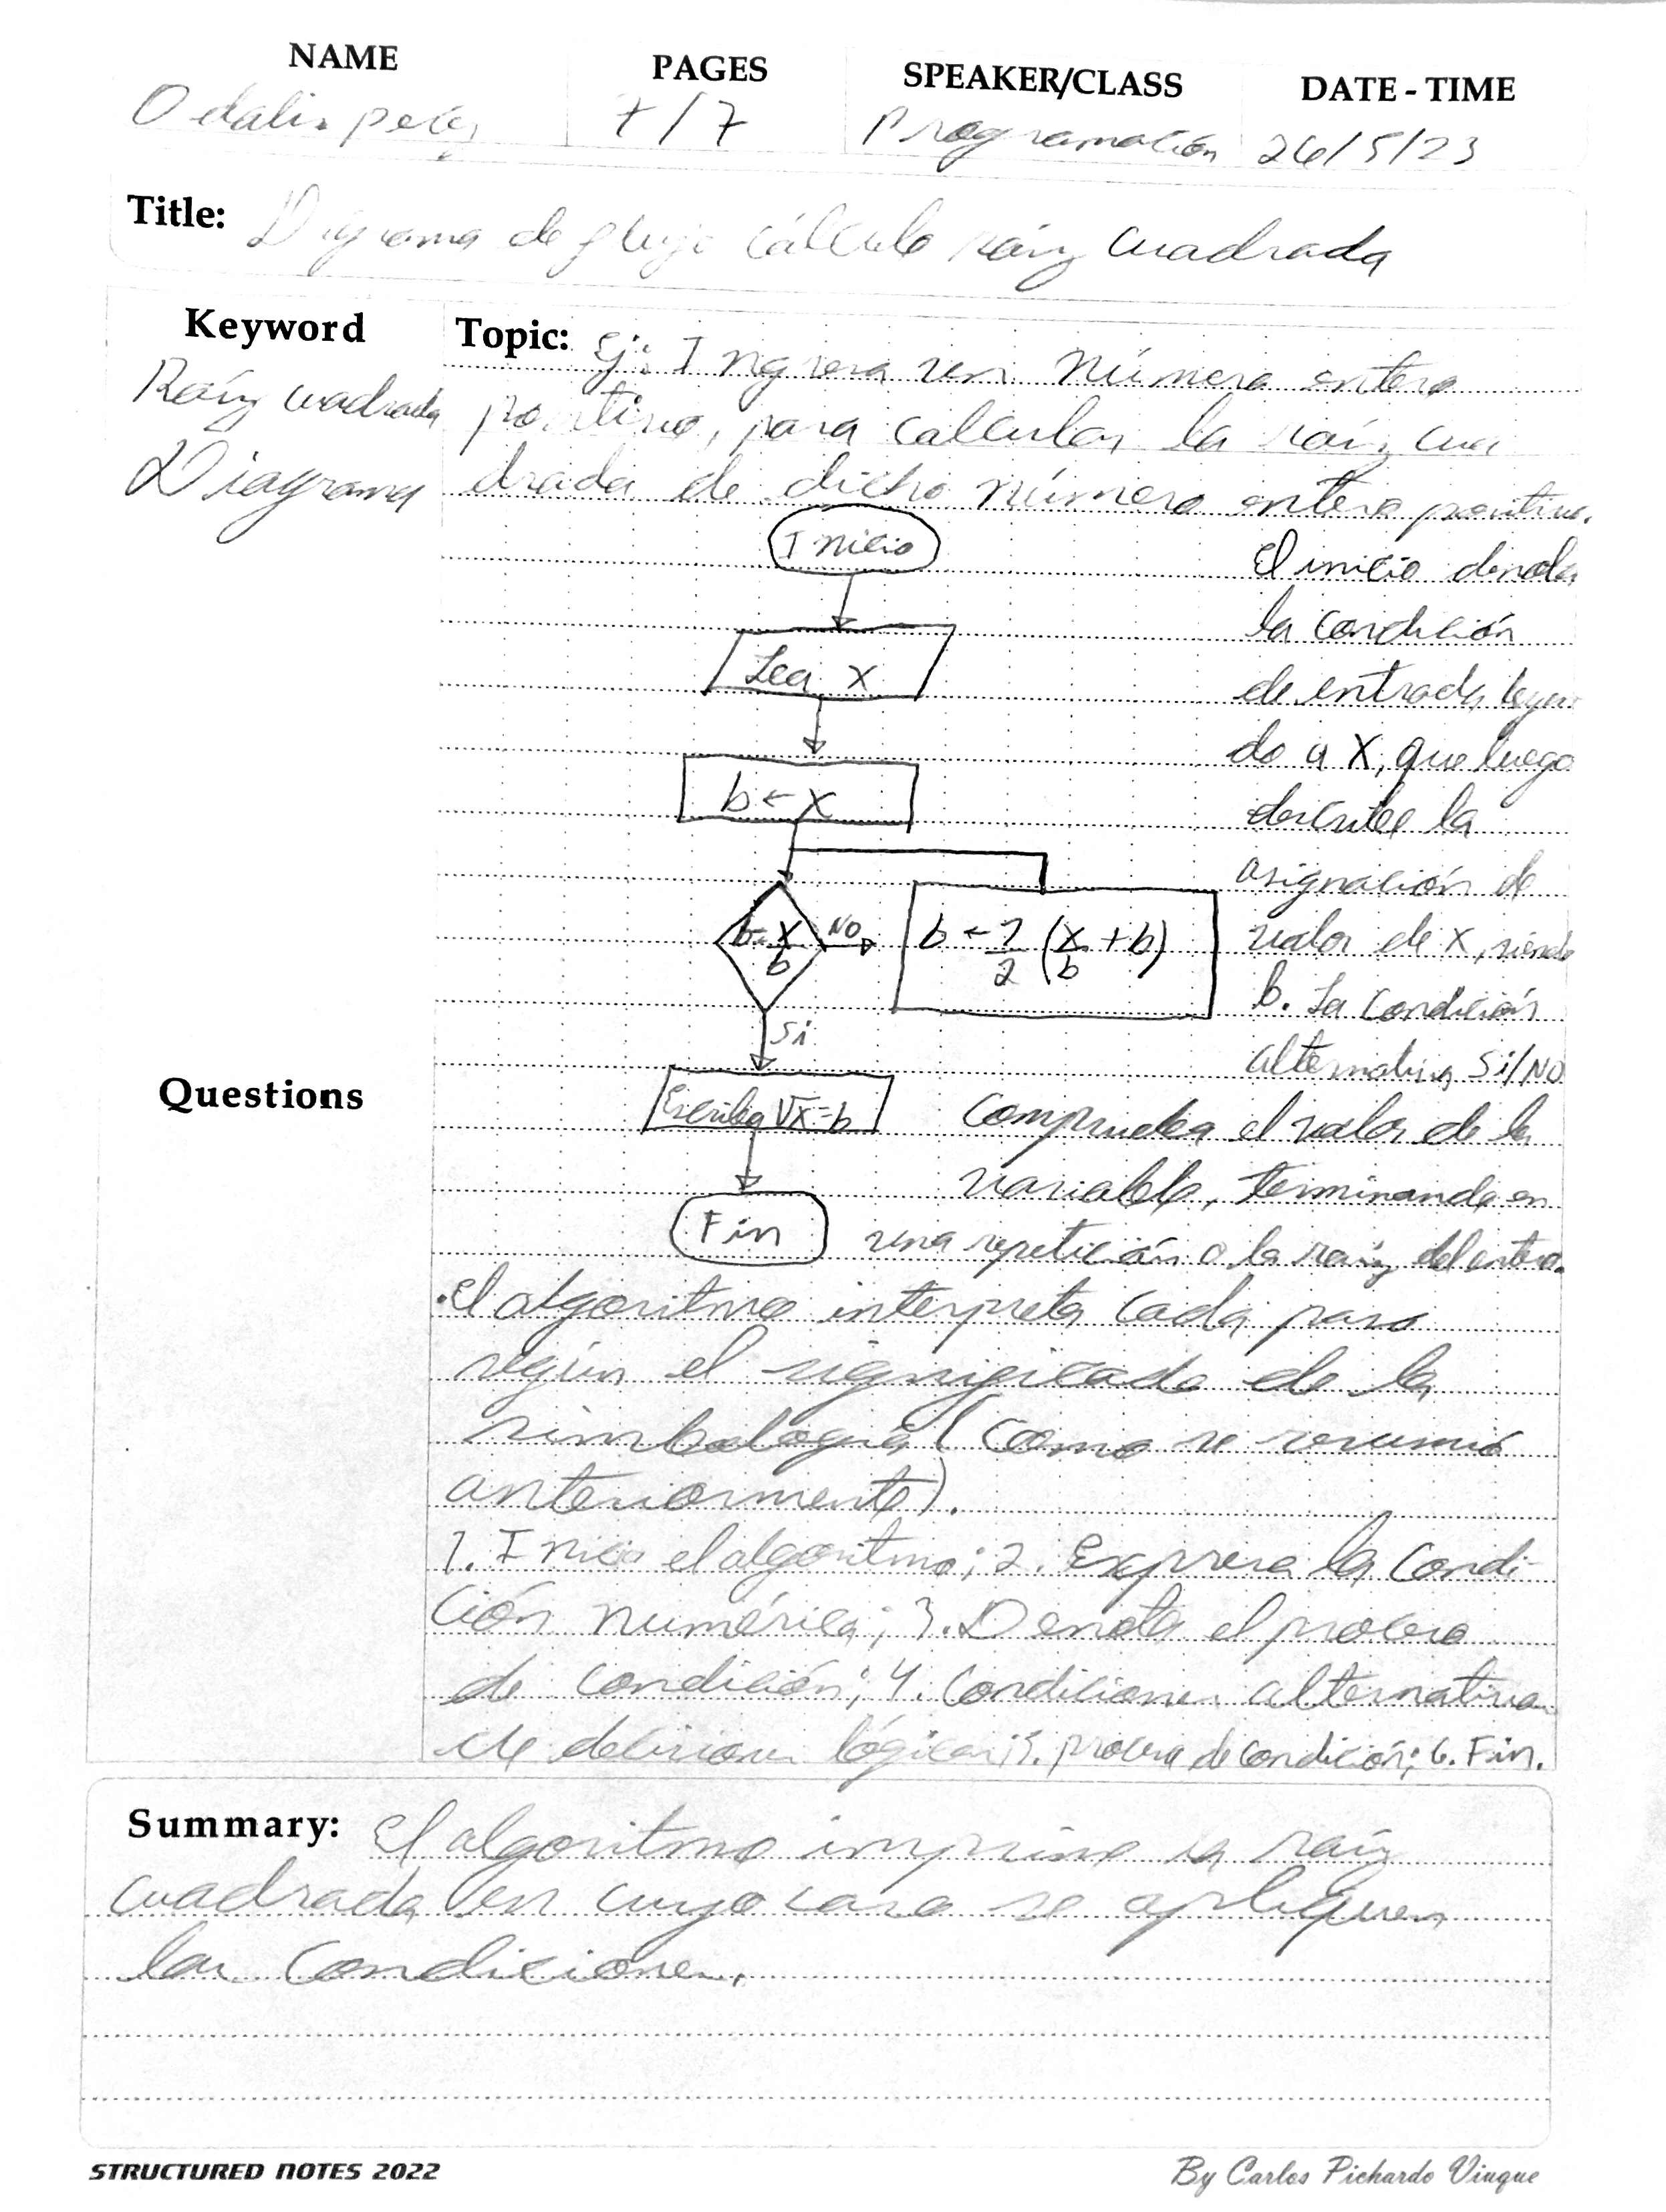 NAME PAGES SPEAKER/CLASS DATE - TIME
Odalis perez 7/7 Programación 26/5/23
Title: Digrama de flujo cálculo raíz cuadrada
Keyword
Raíz cuadrada
Diagrama
Topic: Ej: Ingresa un número entero
positivo, para calcular la raíz cua
drada de dicho número entero positivo.
Inicio
Lea x
b ← x
b = x/b
NO
b ← 1/2 (x/b + b)
Si
Escriba √x = b
Fin
El inicio denota
la condición
de entrada, leyen
do a X, que luego
describe la
asignación de
valor de x, siendo
b. La condición
alternativa Si/NO
comprueba el valor de la
variable, terminando en
una repetición o la raíz del entero.
Questions
.El algoritmo interpreta cada paso
según el significado de la
simbología (como se resumió
anteriormente).
1. Inicia el algoritmo; 2. Expresa la condi-
ción numérica; 3. Denota el proceso
de condición; 4. Condiciones alternativas
de decisiones lógicas; 5. proceso de condición; 6. Fin.
Summary: El algoritmo imprime la raíz
cuadrada en cuyo caso se apliquen
las condiciones.
STRUCTURED NOTES 2022 By Carlos Pichardo Viuque